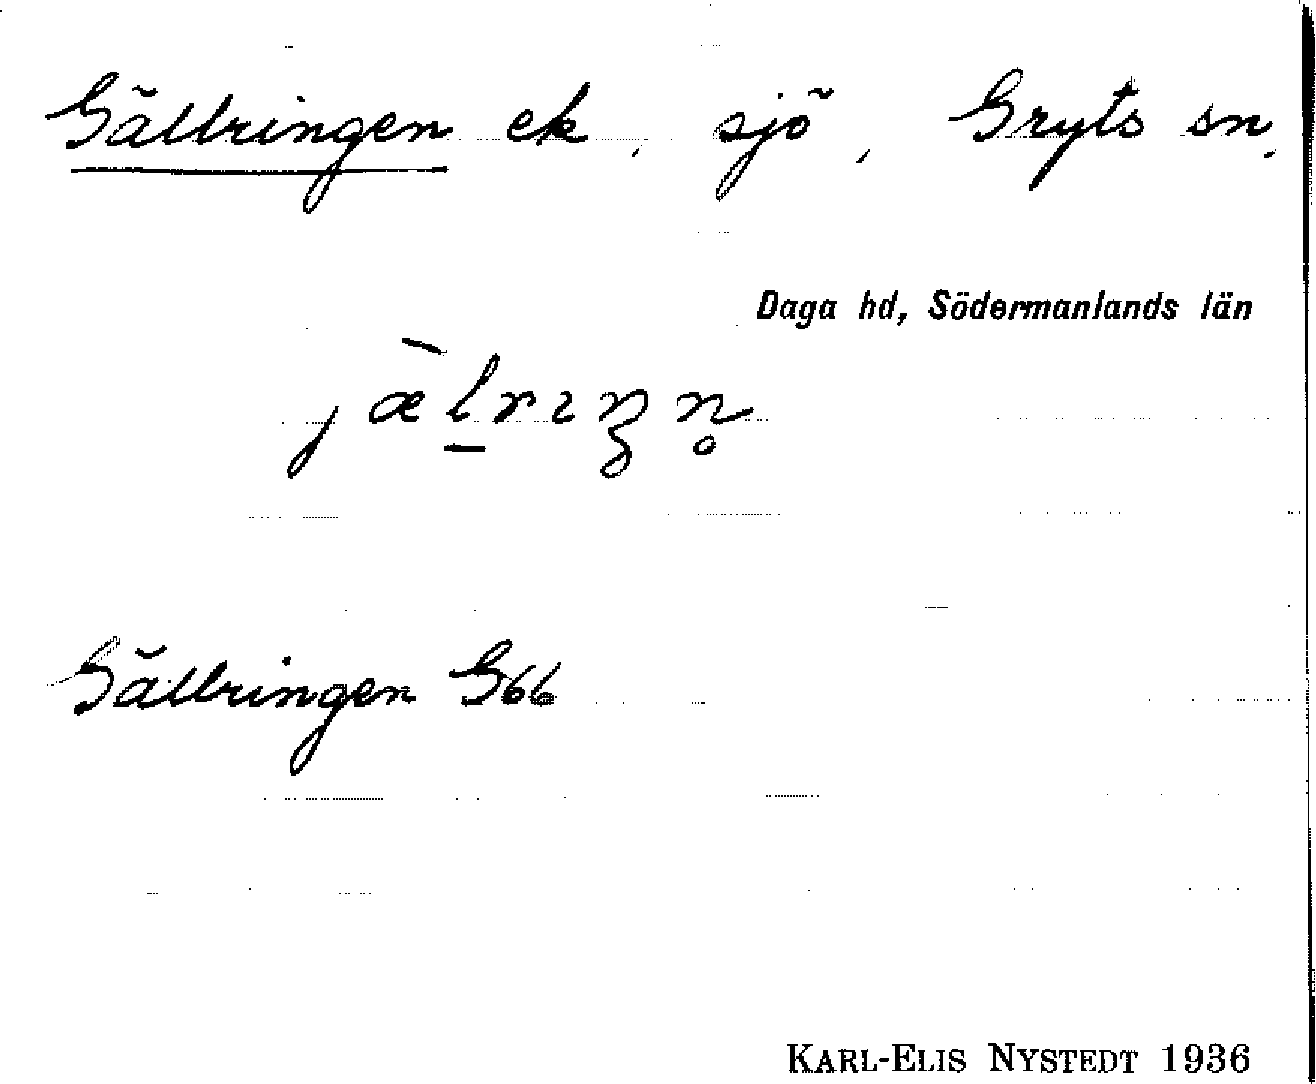 Gällringen ek, sjö, Gryts sn.
Daga hd, Södermanlands län
Gällringen G66
KARL-ELIS NYSTEDT 1936